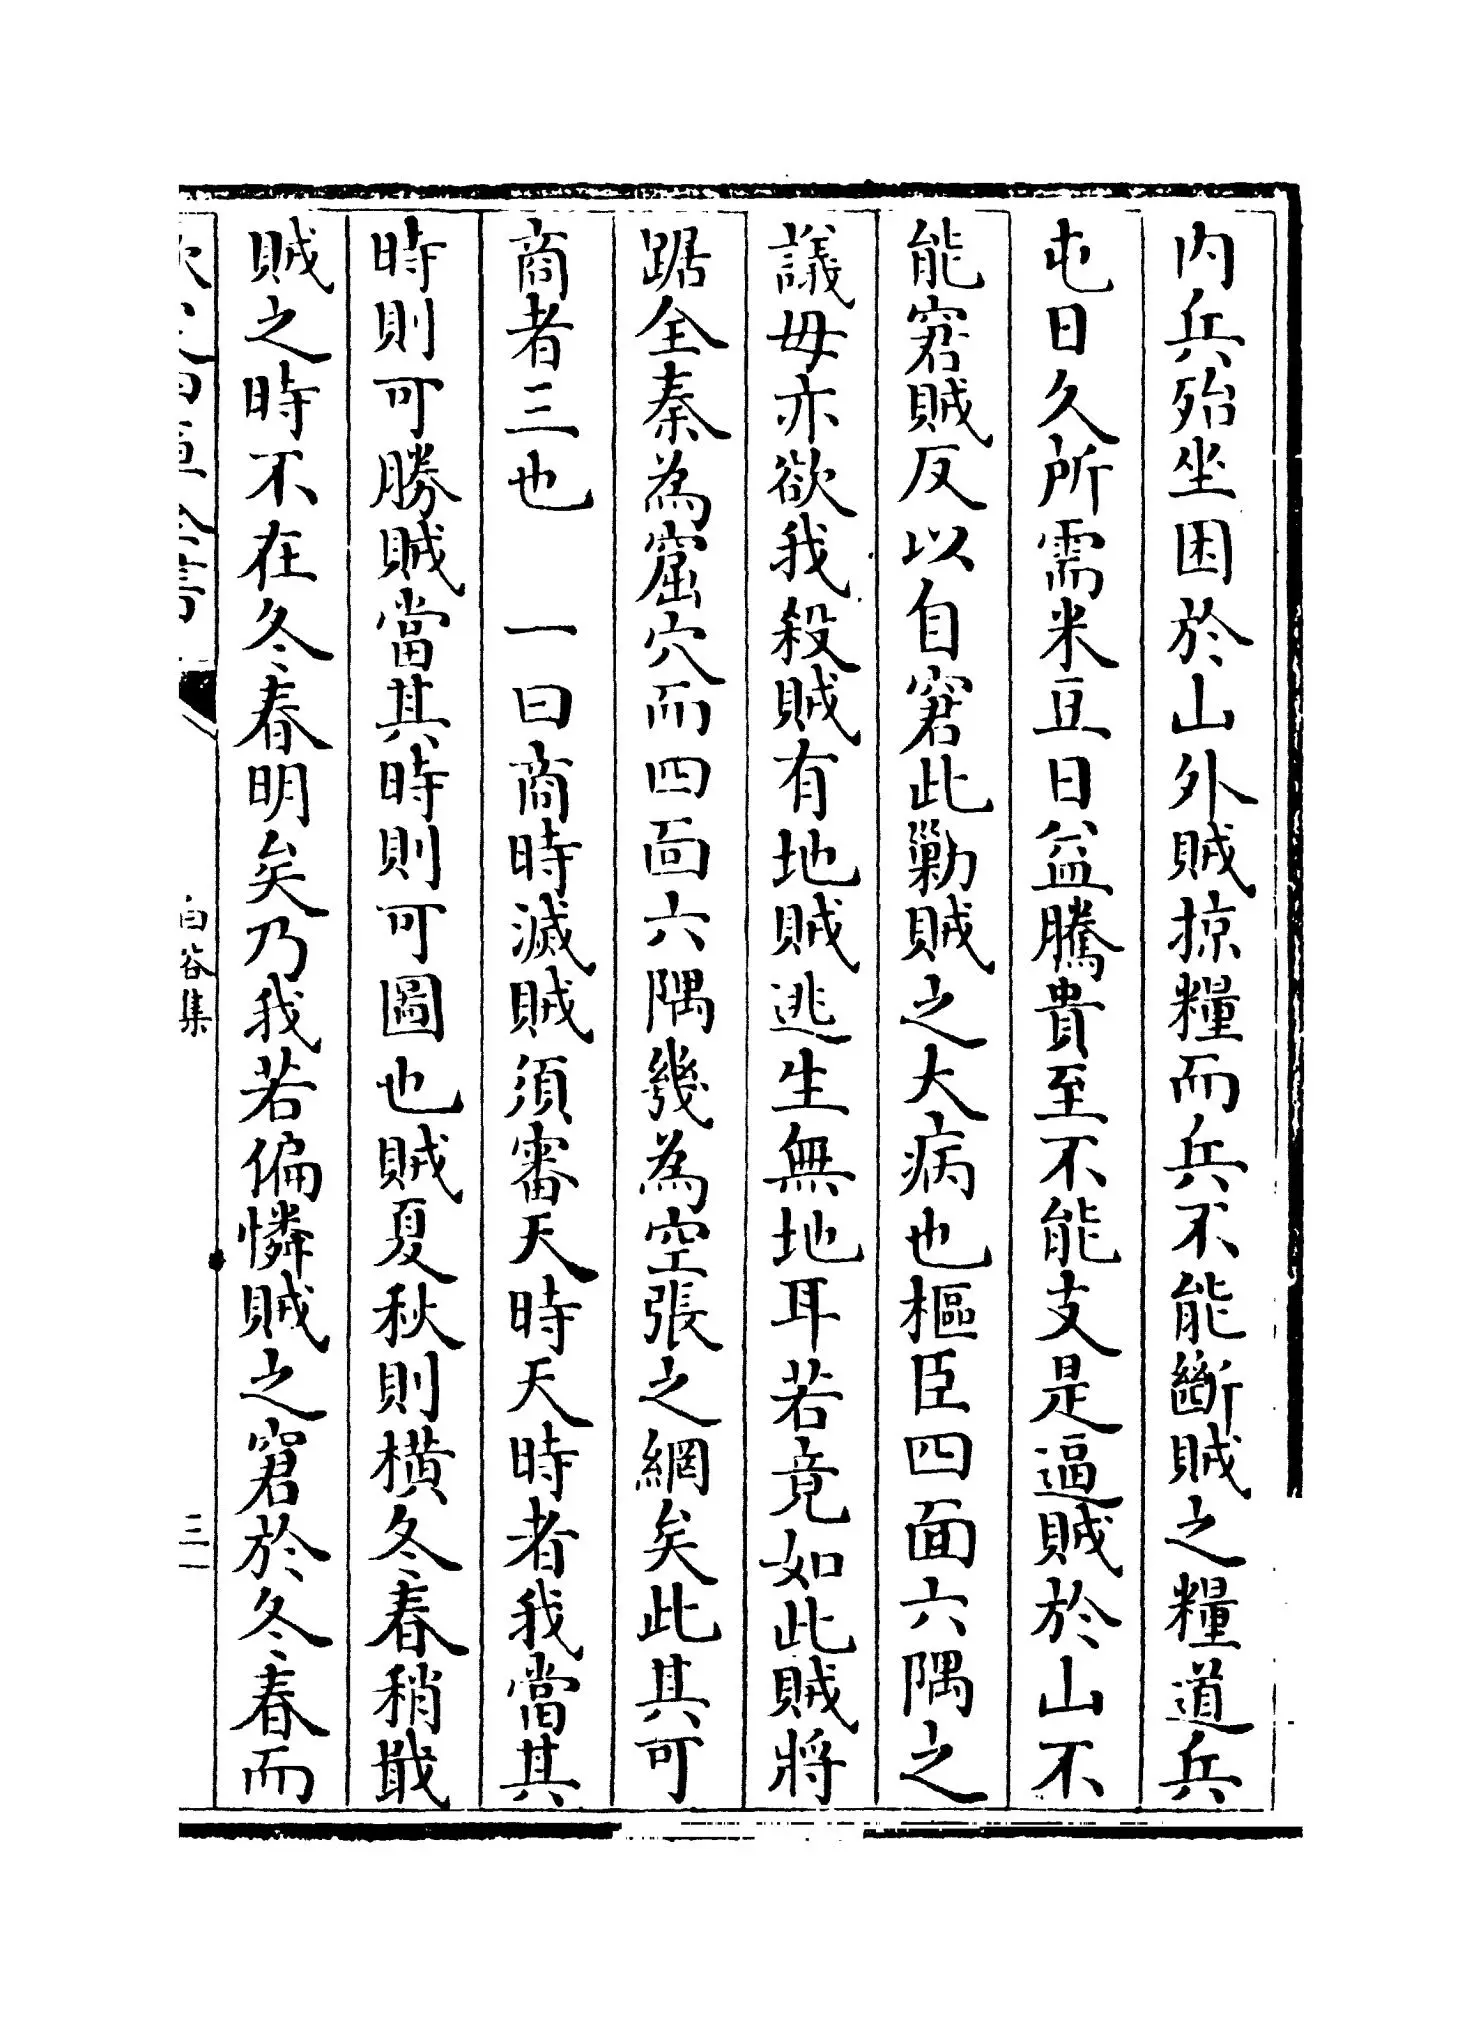 内兵殆坐困於山外賊掠糧而兵不能斷賊之糧道兵
屯日久所需米豆日益騰貴至不能支是逼賊於山不
能窘賊反以自窘此勦賊之大病也樞臣四面六隅之
議毋亦欲我殺賊有地賊逃生無地耳若竟如此賊將
踞全秦為窟穴而四面六隅幾為空張之網矣此其可
商者三也　一曰商時滅賊須審天時天時者我當其
時則可勝賊當其時則可圖也賊夏秋則橫冬春稍戢
賊之時不在冬春明矣乃我若偏憐賊之窘於冬春而
白谷集